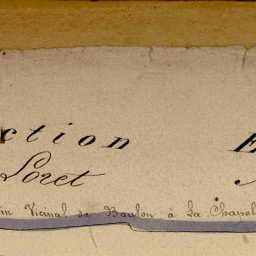 ction E
Loret
in Vicinal de Baulon à La Chapel